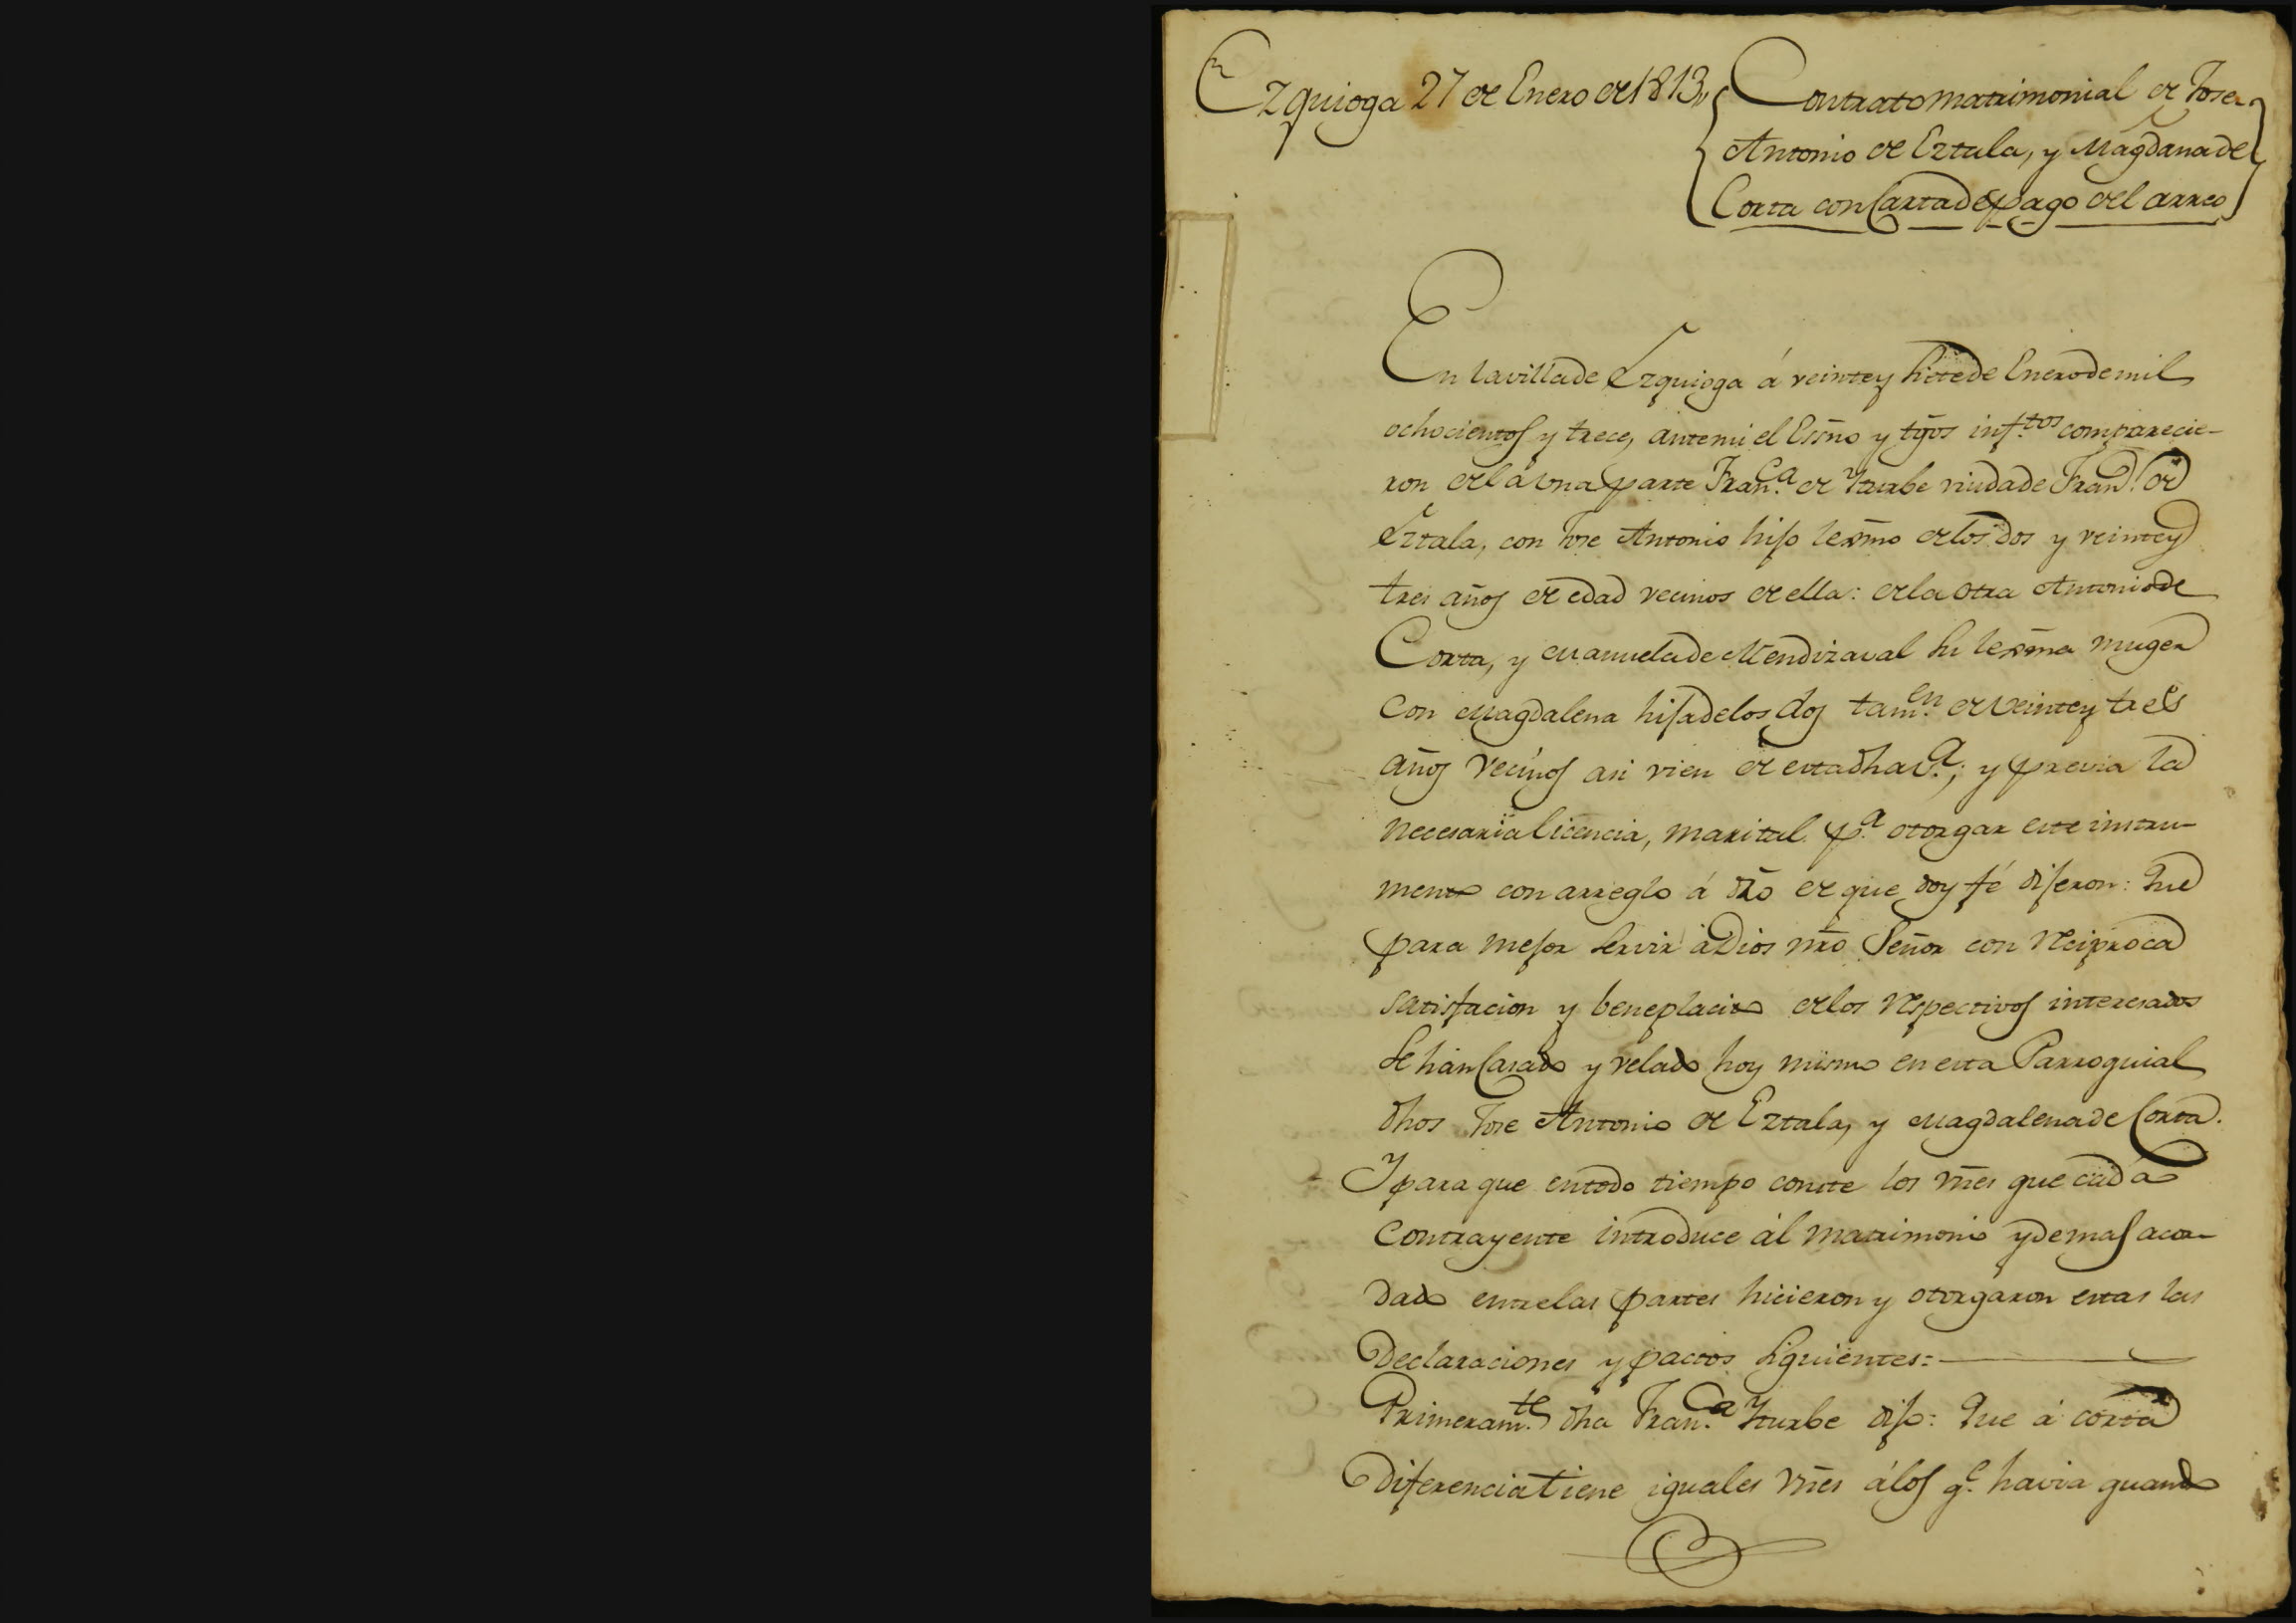 En Ezquioga 27 de Enero de 1813,, Contrato matrimonial de Jose
Antonio de Eztala, y Magdana de
Corta con Carta de pago del arreo
En la villa de Ezquioga á veinte y siete de Enero de mil
ochocientos y trece, ante mi el Essno y tgos inf.tos comparecie-
ron de la una parte Fran.ca de Yturbe viuda de Fran.co de
Eztala, con Jose Antonio hijo lexmo de los dos y veinte y
tres años de edad vecinos de ella: de la otra Antonio de
Corta, y Manuela de Mendizaval su lexma muger
con Magdalena hija de los dos tam.en de veinte y tres
años vecinos asi vien de esta dha v.a; y previa la
necesaria licencia, marital p.a otorgar este instru-
mento con arreglo á dro de que doy fé dijeron: Que
para mejor servir á Dios nro Señor con reciproca
satisfacion y beneplacito de los respectivos interesados
se han casado y velado hoy mismo en esta Parroquial
dhos Jose Antonio de Eztala, y Magdalena de Corta.
Y para que en todo tiempo conste los vnes que cada
contrayente introduce ál matrimonio y demas acor-
dado entre las partes hicieron y otorgaron estas las
Declaraciones y pactos siguientes:
Primeram.te dha Fran.ca Yturbe dijo: Que á corta
diferencia tiene iguales vnes á los q.e havia quando